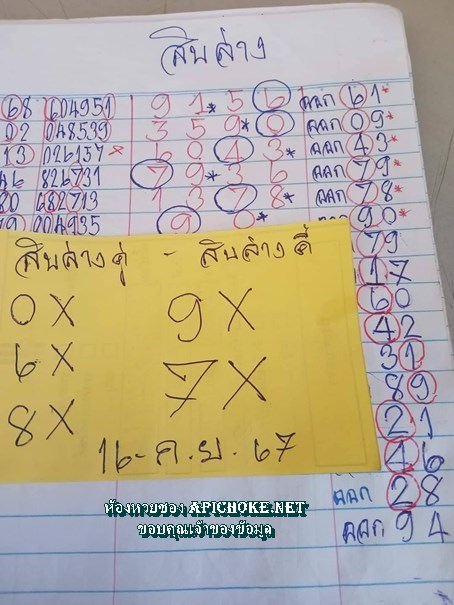 สิบล่าง
68 604951 9 1* 5 6 ออก 61*
02 048539 3 5 9* 0 ออก 09*
13 026157* 6 0 4 3* ออก 43*
46 826731 7 9* 3 6 ออก 79*
80 682713 1 3 7 8* ออก 78*
79 004935 9 0* ออก 90*
79
17
60
42
31
89
21
46
ออก 28
ออก 94
สิบล่างคู่ - สิบล่างคี่
0X 9X
6X 7X
8X
16-ก.ย.67
ห้องหวยซอง APICHOKE.NET
ขอบคุณเจ้าของข้อมูล